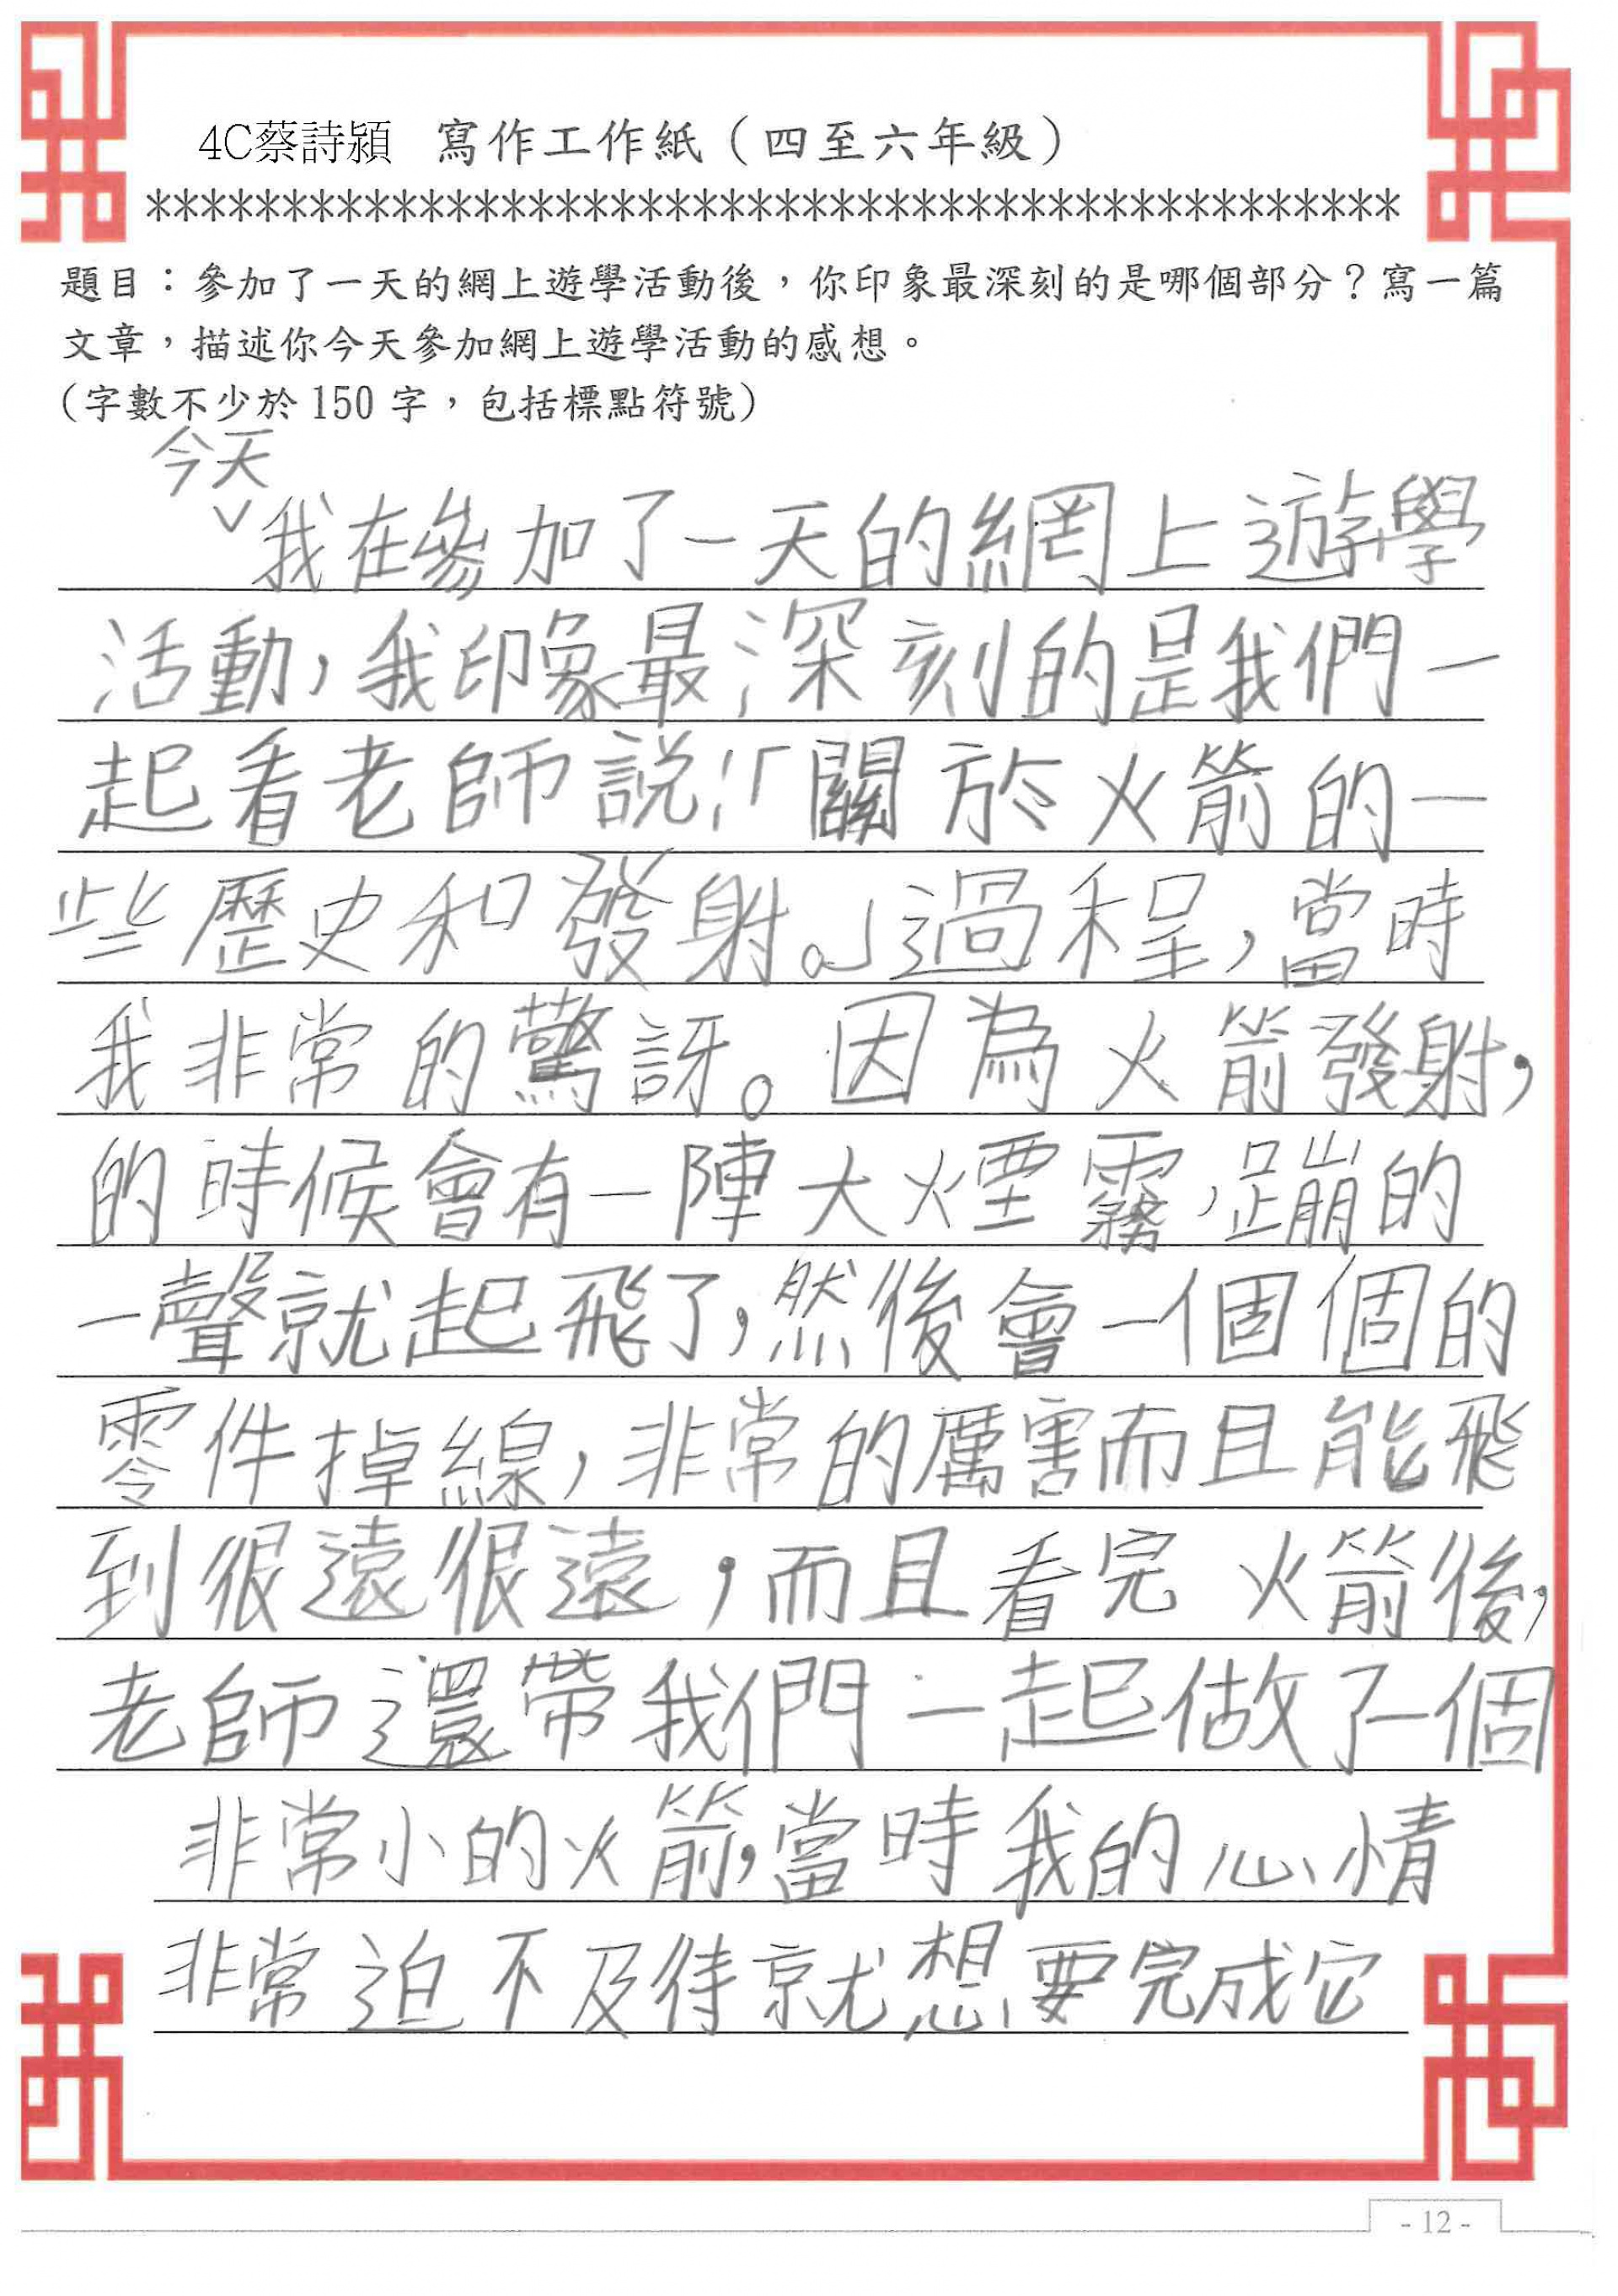 4C蔡詩潁 寫作工作紙（四至六年級）
***********************************************
題目：參加了一天的網上遊學活動後，你印象最深刻的是哪個部分？寫一篇
文章，描述你今天參加網上遊學活動的感想。
（字數不少於 150 字，包括標點符號）
今天
我在參加了一天的網上遊學
活動，我印象最深刻的是我們一
起看老師說：「關於火箭的一
些歷史和發射。」過程，當時
我非常的驚訝。因為火箭發射，
的時候會有一陣大煙霧，蹦的
一聲就起飛了，然後會一個個的
零件掉線，非常的厲害而且能飛
到很遠很遠，而且看完火箭後，
老師還帶我們一起做了一個
非常小的火箭，當時我的心情
非常迫不及待就想要完成它
- 12 -